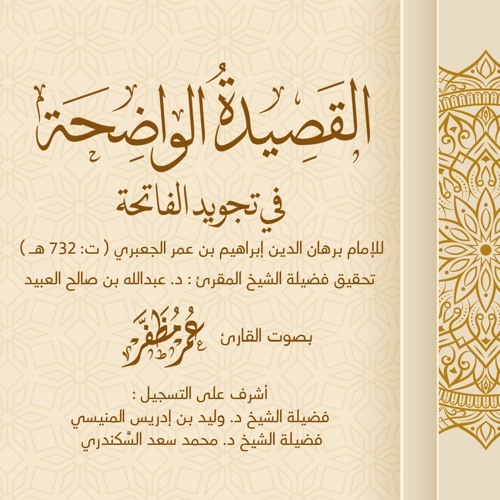 القَصِيدةُ الواضِحَة
في تجويد الفاتحة
للإمام برهان الدين إبراهيم بن عمر الجعبري ( ت: 732 هـ )
تحقيق فضيلة الشيخ المقرئ : د. عبدالله بن صالح العبيد
بصوت القارئ عُمر مُظفَّر
أشرف على التسجيل :
فضيلة الشيخ د. وليد بن إدريس المنيسي
فضيلة الشيخ د. محمد سعد السَّكندري